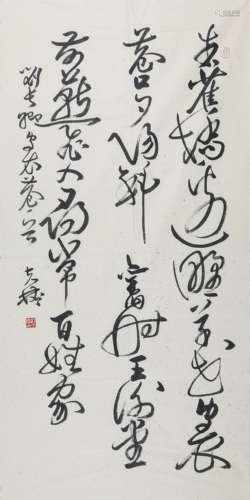 朱雀橋邊野草花烏衣
巷口夕陽斜舊時王謝堂
前燕飛入尋常百姓家
劉烏衣巷